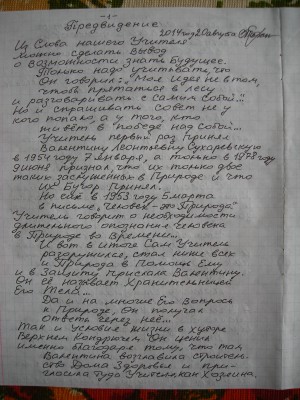 -1-
Предвидение 2014 год 20 августа
Из Слова нашего Учителя
можно сделать вывод
о возможности знать Будущее.
Только надо учитывать, что
Он говорил: "Моя идея не в том,
чтобы прятаться в лесу
и разговаривать с самим собой..."
Но и спрашивать Совет не у
кого попало, а у того, кто
живёт в "победе над Собой..."
Учитель первый раз Принял
Валентину Леонтьевну Сухаревскую
в 1954 году 7 января, а только в 1978 году
июня признал, что их только двое
таких заслуженных в Природе и что
их Бугор Принял.
Но ещё в 1953 году 5 марта
в письме, "Человек - это Природа"
Учитель говорит о необходимости
длительного опознания человека
в Природе во Времени...
И вот в итоге Сам Учитель
разоружился, стал ниже всех
и Природа в Помощь Ему
и в Защиту прислала Валентину.
Он её называет Хранительницей
Его Тела...
Да и на многие Его вопросы
к Природе, Он получал
ответы через неё...
Так и условие жизни в хуторе
Верхнем Кондрючем Он ценил
именно благодаря тому, что там
Валентина возглавила строитель-
ство Дома Здоровья и при-
гласила туда Учителя как Хозяина.